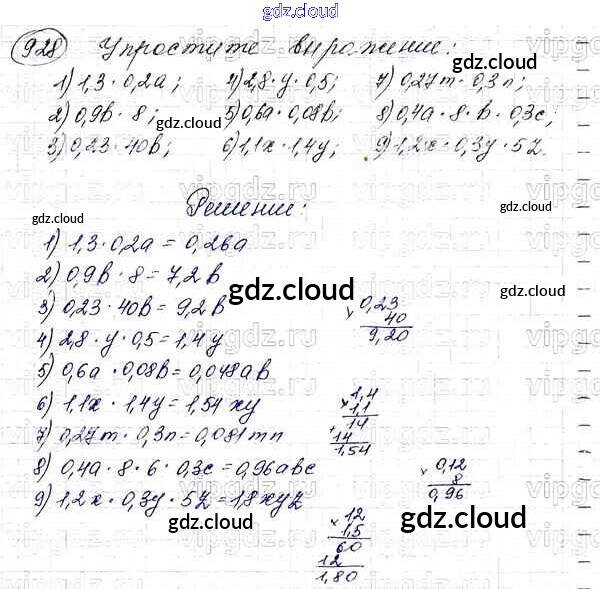 gdz.cloud
928 Упростите выражение:
1) 1,3 · 0,2a; 4) 2,8 · y · 0,5; 7) 0,27m · 0,3n;
2) 0,9b · 8; 5) 0,6a · 0,08b; 8) 0,4a · 8 · b · 0,3c;
3) 0,23 · 40b; 6) 1,1x · 1,4y; 9) 1,2x · 0,3y · 5z.
Решение:
1) 1,3 · 0,2a = 0,26a
2) 0,9b · 8 = 7,2b
3) 0,23 · 40b = 9,2b
× 0,23
40
9,20
4) 2,8 · y · 0,5 = 1,4y
5) 0,6a · 0,08b = 0,048ab
6) 1,1x · 1,4y = 1,54xy
× 1,4
1,1
+ 14
14
1,54
7) 0,27m · 0,3n = 0,081mn
8) 0,4a · 8 · 6 · 0,3c = 0,96abc
× 0,12
8
0,96
9) 1,2x · 0,3y · 5z = 1,8xyz
× 12
1,5
60
12
1,80
gdz.cloud
gdz.cloud
gdz.cloud
gdz.cloud
gdz.cloud
gdz.cloud
gdz.cloud
gdz.cloud
gdz.cloud
vipgdz.ru